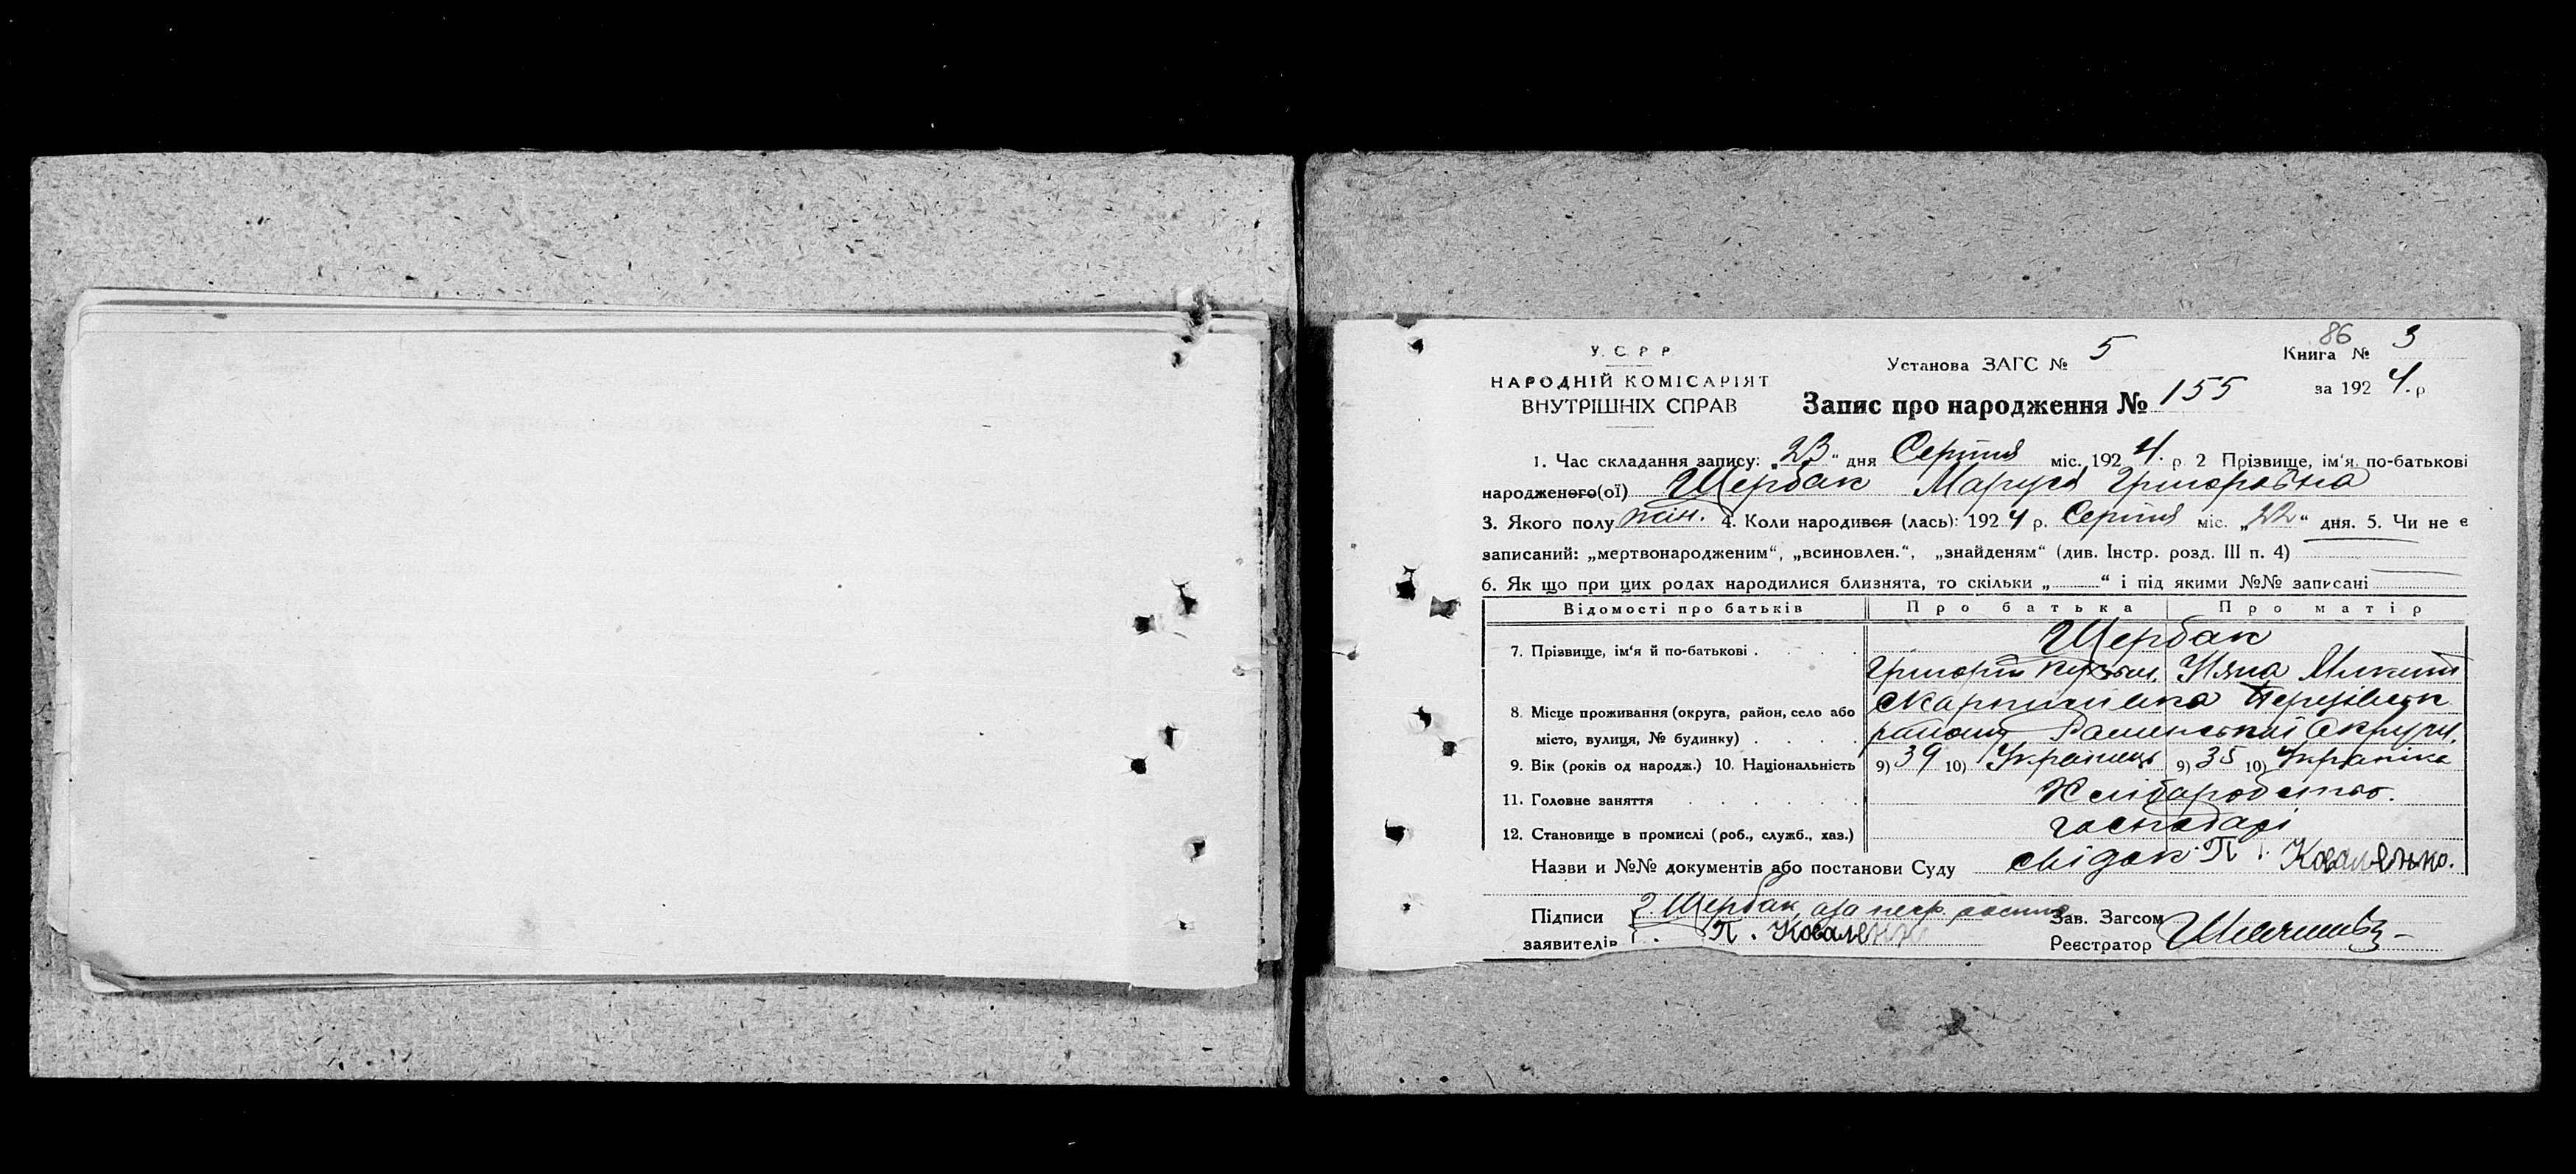 86
У. С. Р. Р.
НАРОДНІЙ КОМІСАРІЯТ
ВНУТРІШНІХ СПРАВ
Установа ЗАГС № 5
Книга № 3
за 1924 р
Запис про народження № 155
1. Час складання запису: „23“ дня Серпня міс. 1924 р. 2 Прізвище, ім‘я, по-батькові
народженого(ої) Щербак Маруся Григоровна
3. Якого полу жін. 4. Коли народився (лась): 1924 р. Серпня міс. „22“ дня. 5. Чи не є
записаний: „мертвонародженим“, „всиновлен.“, „знайденям“ (див. Інстр. розд. III п. 4)
6. Як що при цих родах народилися близнята, то скільки „ “ і під якими №№ записані
Відомості про батьків Про батька Про матір
7. Прізвище, ім‘я й по-батькові Щербак
Григорій Кузьм.
8. Місце проживання (округа, район, село або
місто, вулиця, № будинку)
району Роменської Округи.
9. Вік (років од народж.) 10. Національність 9) 39 10) Українець 9) 35 10) Українка
11. Головне заняття Хліборобство.
12. Становище в промислі (роб., служб., хаз.) господарі
Назви и №№ документів або постанови Суду свідок П. Коваленко.
Підписи Г. Щербак, а за негр.
заявителів П. Коваленко
Зав. Загсом
Реєстратор